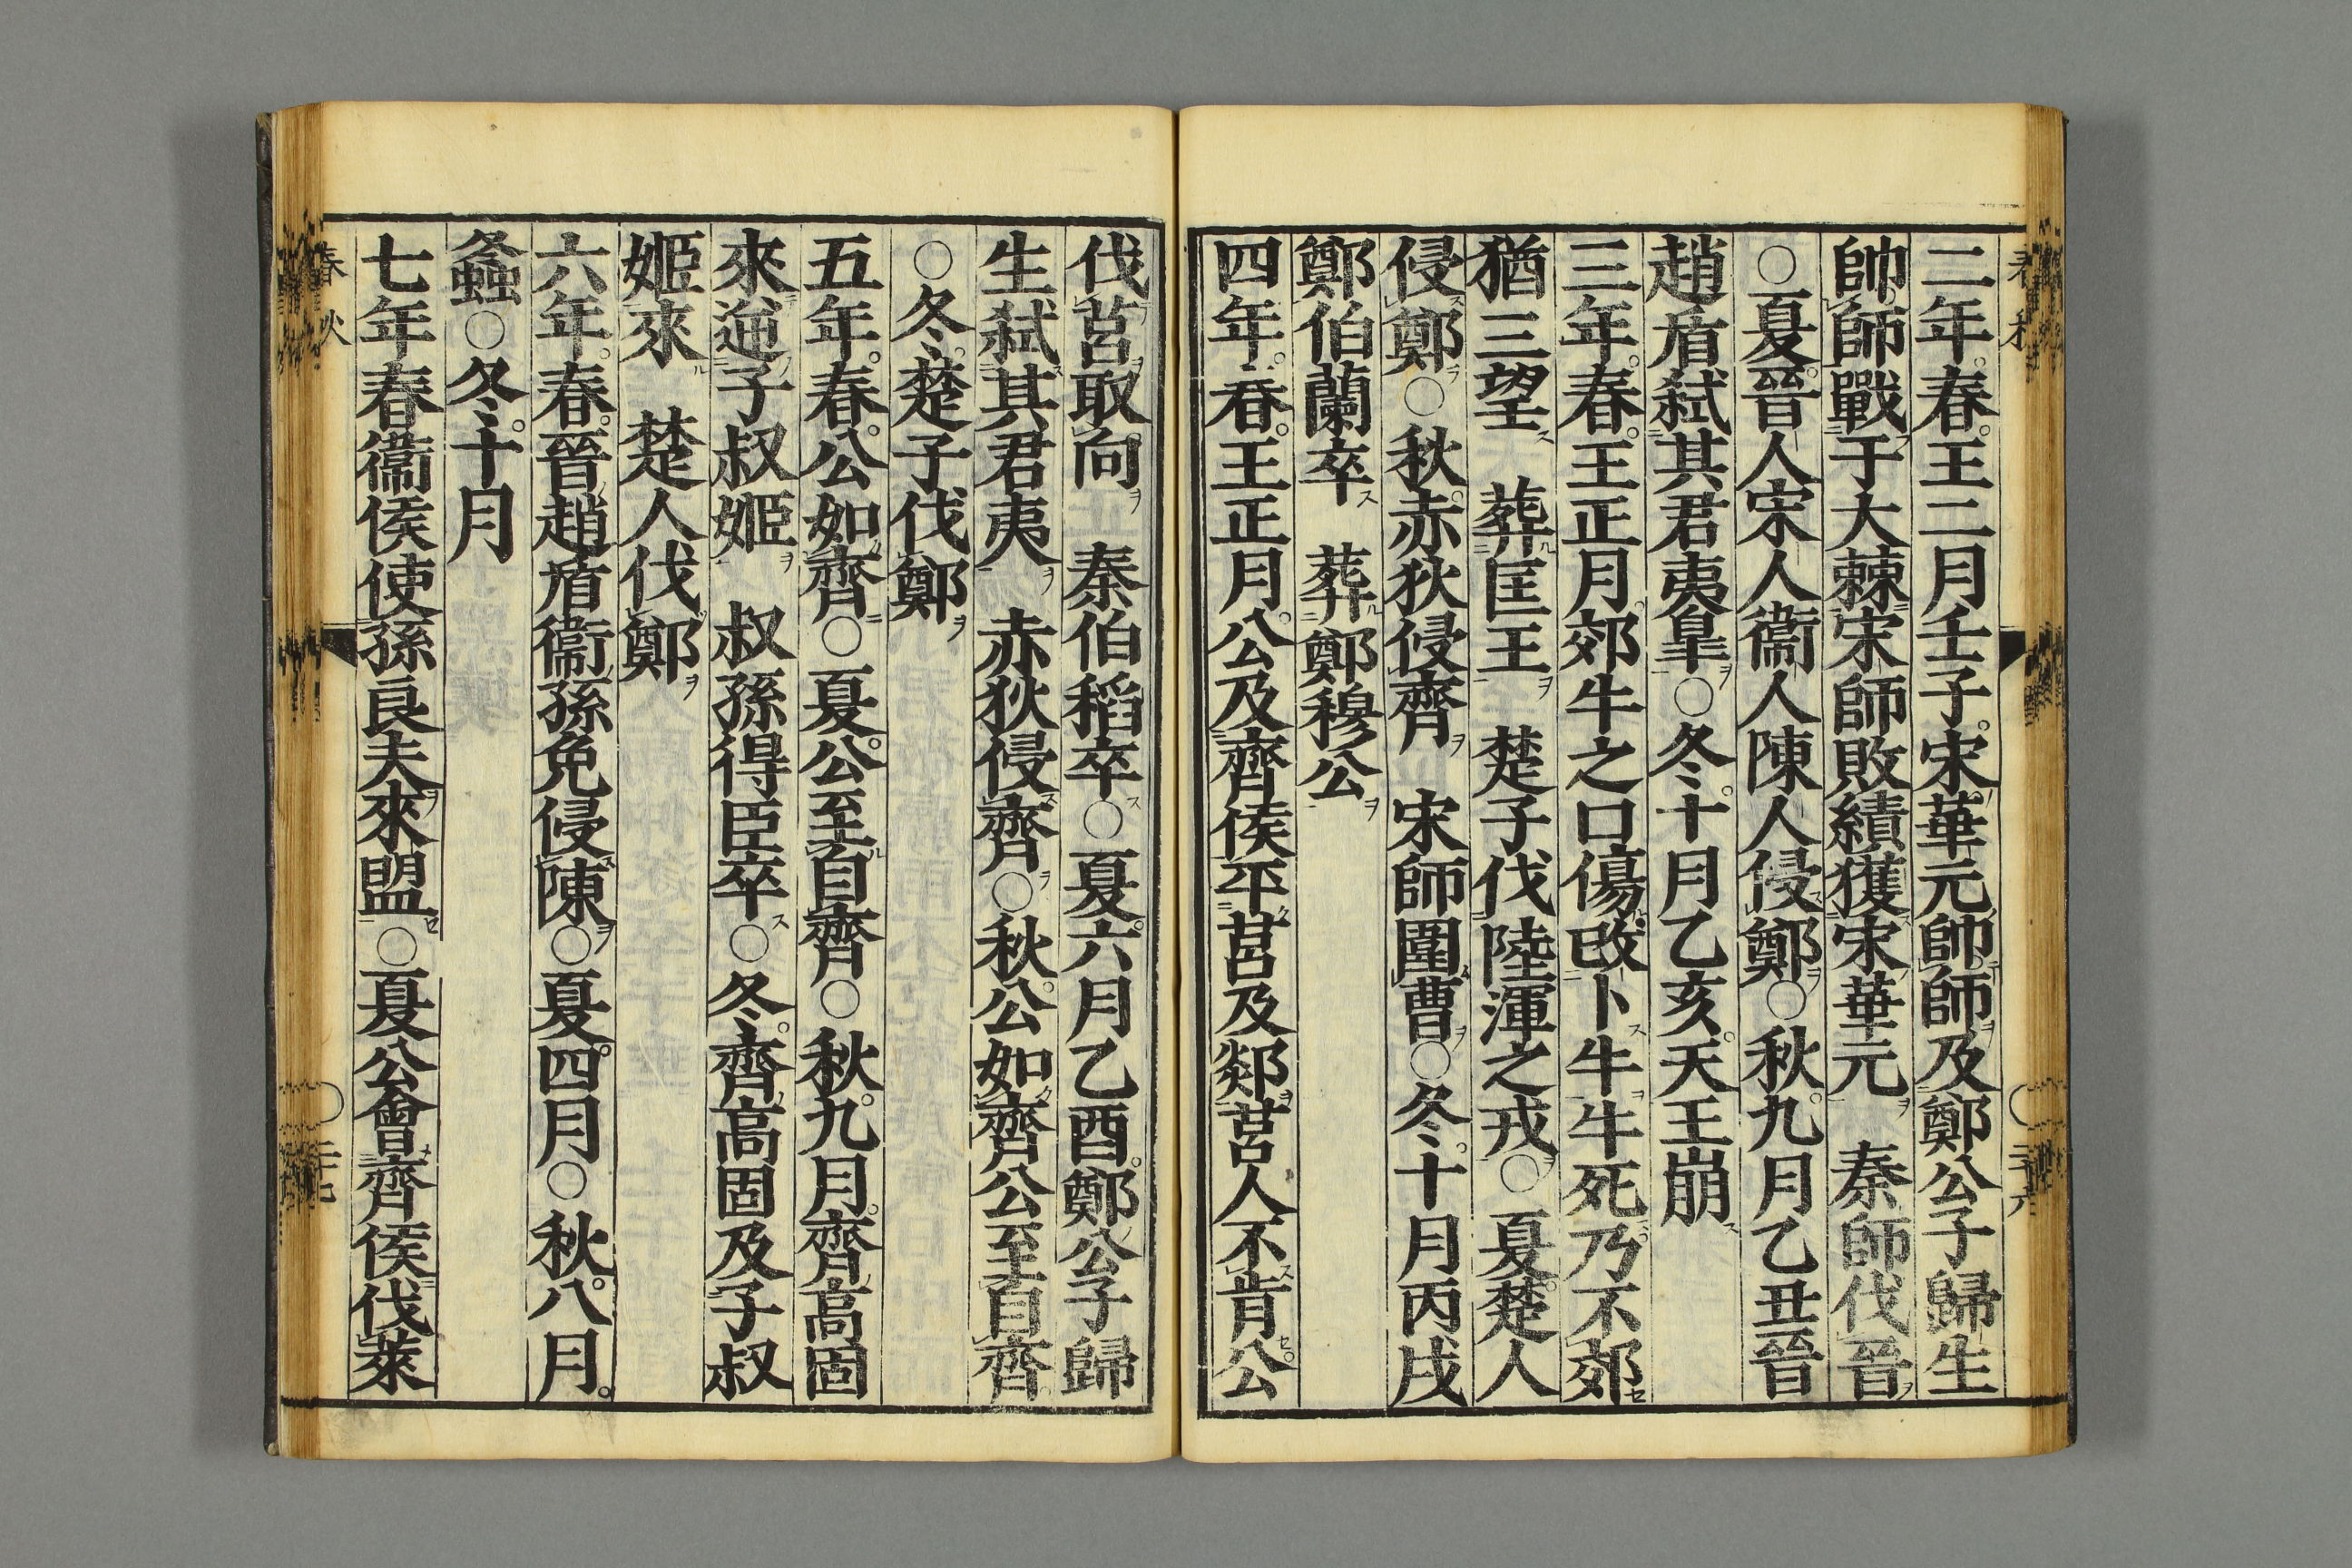 二年春王二月壬子宋華元帥師及鄭公子歸生
帥師戰于大棘宋師敗績獲宋華元　秦師伐晉
○夏晉人宋人衞人陳人侵鄭○秋九月乙丑晉
趙盾弑其君夷皐○冬十月乙亥天王崩
三年春王正月郊牛之口傷改卜牛牛死乃不郊
猶三望　葬匡王　楚子伐陸渾之戎○夏楚人
侵鄭○秋赤狄侵齊　宋師圍曹○冬十月丙戌
鄭伯蘭卒　葬鄭穆公
四年春王正月公及齊侯平莒及郯莒人不肯公
伐莒取向　秦伯稻卒○夏六月乙酉鄭公子歸
生弑其君夷　赤狄侵齊○秋公如齊公至自齊
○冬楚子伐鄭
五年春公如齊○夏公至自齊○秋九月齊高固
來逆子叔姬　叔孫得臣卒○冬齊高固及子叔
姬來　楚人伐鄭
六年春晉趙盾衞孫免侵陳○夏四月○秋八月
螽○冬十月
七年春衞侯使孫良夫來盟○夏公會齊侯伐萊
春秋
○二十七